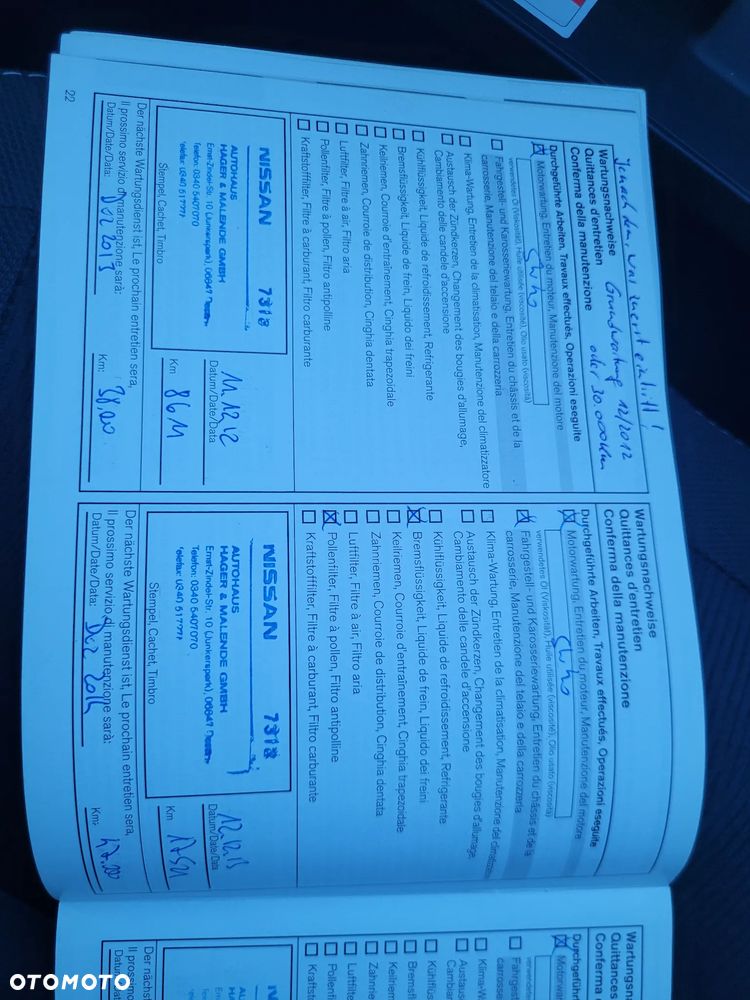 Je nach dem, was zuerst eintritt!
Grundwartung 12/2012
oder 30 000 km
Wartungsnachweise
Quittances d'entretien
Conferma della manutenzione
Durchgeführte Arbeiten, Travaux effectués, Operazioni eseguite
Motorwartung, Entretien du moteur, Manutenzione del motore
verwendetes Öl (Viskosität), Huile utilisée (viscosité), Olio usato (viscosità)
Fahrgestell- und Karosseriewartung, Entretien du châssis et de la
carrosserie, Manutenzione del telaio e della carrozzeria
Klima-Wartung, Entretien de la climatisation, Manutenzione del climatizzatore
Austausch der Zündkerzen, Changement des bougies d'allumage,
Cambiamento delle candele d'accensione
Kühlflüssigkeit, Liquide de refroidissement, Refrigerante
Bremsflüssigkeit, Liquide de frein, Liquido dei freini
Keilriemen, Courroie d'entraînement, Cinghia trapezoidale
Zahnriemen, Courroie de distribution, Cinghia dentata
Luftfilter, Filtre à air, Filtro aria
Pollenfilter, Filtre à pollen, Filtro antipolline
Kraftstofffilter, Filtre à carburant, Filtro carburante
NISSAN 7318
AUTOHAUS
HAGER & MALENDE GMBH
Ernst-Zindel-Str. 10 (Junkerspark), 06847 Dessau
Telefon: 0340 5407070
Telefax: 0340 517777
Stempel, Cachet, Timbro
11.12.12
Datum/Date/Data
8611
Km
Der nächste Wartungsdienst ist, Le prochain entretien sera,
Il prossimo servizio di manutenzione sarà:
Datum/Date/Data: Dez 2013
Km: 38.000
22
Wartungsnachweise
Quittances d'entretien
Conferma della manutenzione
Durchgeführte Arbeiten, Travaux effectués, Operazioni eseguite
Motorwartung, Entretien du moteur, Manutenzione del motore
verwendetes Öl (Viskosität), Huile utilisée (viscosité), Olio usato (viscosità)
Fahrgestell- und Karosseriewartung, Entretien du châssis et de la
carrosserie, Manutenzione del telaio e della carrozzeria
Klima-Wartung, Entretien de la climatisation, Manutenzione del climatizza
Austausch der Zündkerzen, Changement des bougies d'allumage,
Cambiamento delle candele d'accensione
Kühlflüssigkeit, Liquide de refroidissement, Refrigerante
Bremsflüssigkeit, Liquide de frein, Liquido dei freini
Keilriemen, Courroie d'entraînement, Cinghia trapezoidale
Zahnriemen, Courroie de distribution, Cinghia dentata
Luftfilter, Filtre à air, Filtro aria
Pollenfilter, Filtre à pollen, Filtro antipolline
Kraftstofffilter, Filtre à carburant, Filtro carburante
NISSAN 7318
AUTOHAUS
HAGER & MALENDE GMBH
Ernst-Zindel-Str. 10 (Junkerspark), 06847 Dessau
Telefon: 0340 5407070
Telefax: 0340 517777
Stempel, Cachet, Timbro
12.12.13
Datum/Date/Data
Km
Der nächste Wartungsdienst ist, Le prochain entretien sera,
Il prossimo servizio di manutenzione sarà:
Datum/Date/Data: Dez 2014
Km: 47.000
Wartungsn
Quittances
Conferma
Durchgeführ
Motorwart
Fahrgest
carrosse
Klima-W
Austaus
Cambia
Kühlflüs
Bremsf
Keilrie
Zahnrie
Luftfilte
Pollenfi
Kraftst
NISS
AUTO
HAGE
Der näch
Il prossimo
Datum/D
OTOMOTO